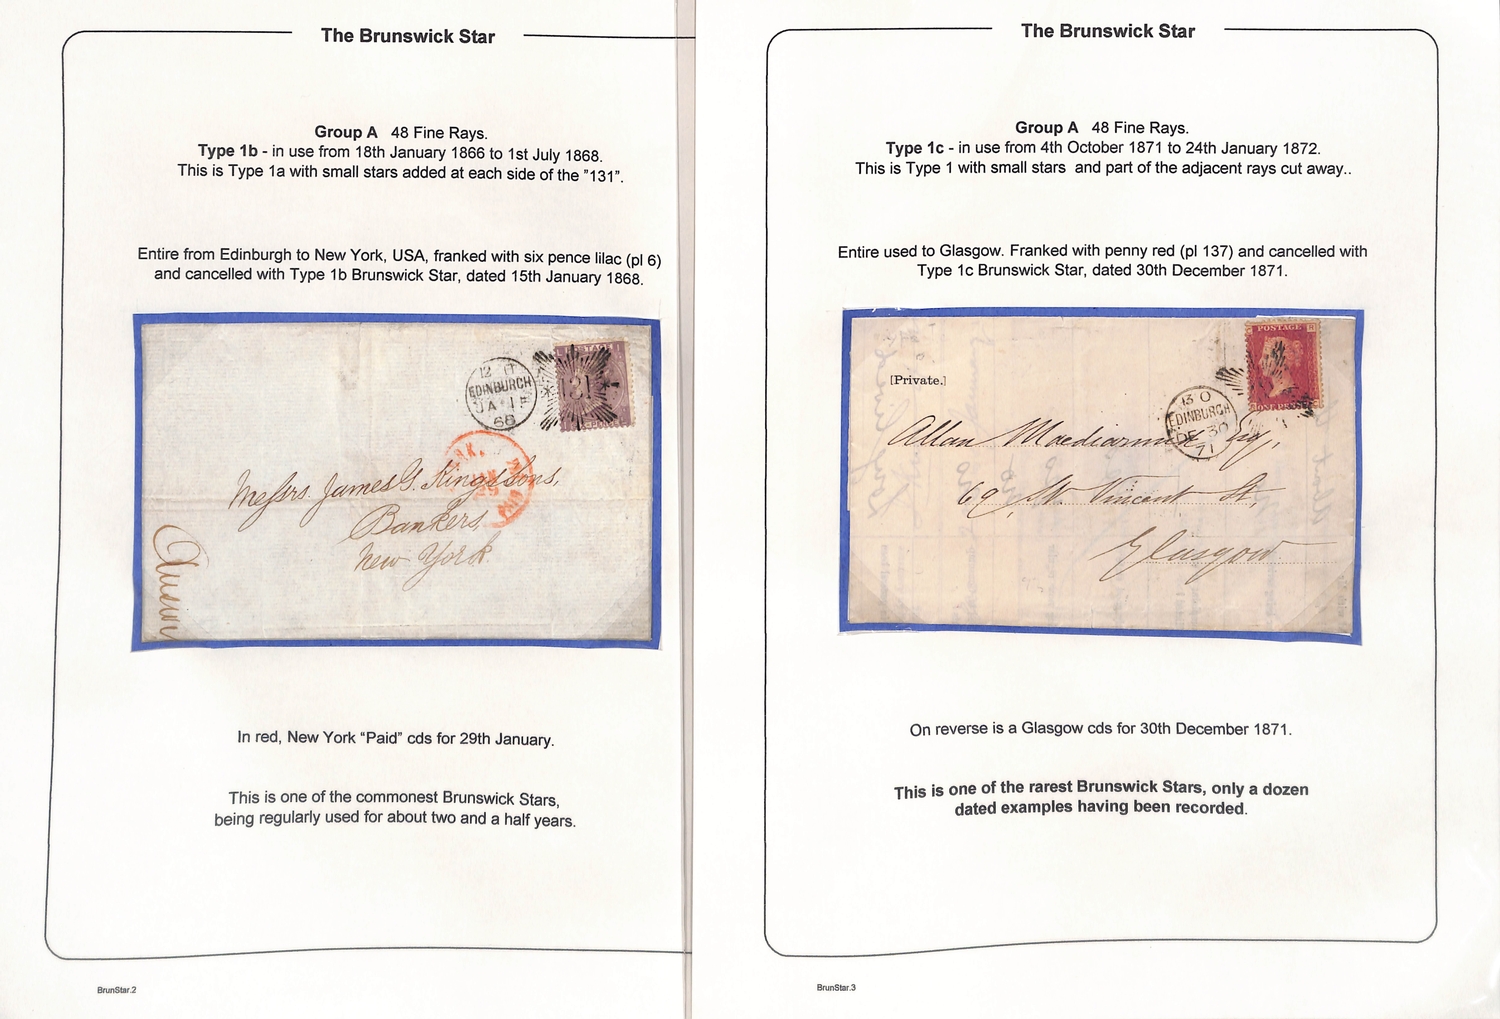 The Brunswick Star
Group A 48 Fine Rays.
Type 1b - in use from 18th January 1866 to 1st July 1868.
This is Type 1a with small stars added at each side of the "131".
Entire from Edinburgh to New York, USA, franked with six pence lilac (pl 6)
and cancelled with Type 1b Brunswick Star, dated 15th January 1868.
EDINBURGH
JA
68
131
Messrs. James G. King Sons,
Bankers
New York.
In red, New York “Paid” cds for 29th January.
This is one of the commonest Brunswick Stars,
being regularly used for about two and a half years.
BrunStar.2
The Brunswick Star
Group A 48 Fine Rays.
Type 1c - in use from 4th October 1871 to 24th January 1872.
This is Type 1 with small stars and part of the adjacent rays cut away..
Entire used to Glasgow. Franked with penny red (pl 137) and cancelled with
Type 1c Brunswick Star, dated 30th December 1871.
POSTAGE
[Private.]
EDINBURGH
DE 30
71
Allan Esq,
69, St. Vincent St,
Glasgow
On reverse is a Glasgow cds for 30th December 1871.
This is one of the rarest Brunswick Stars, only a dozen
dated examples having been recorded.
BrunStar.3